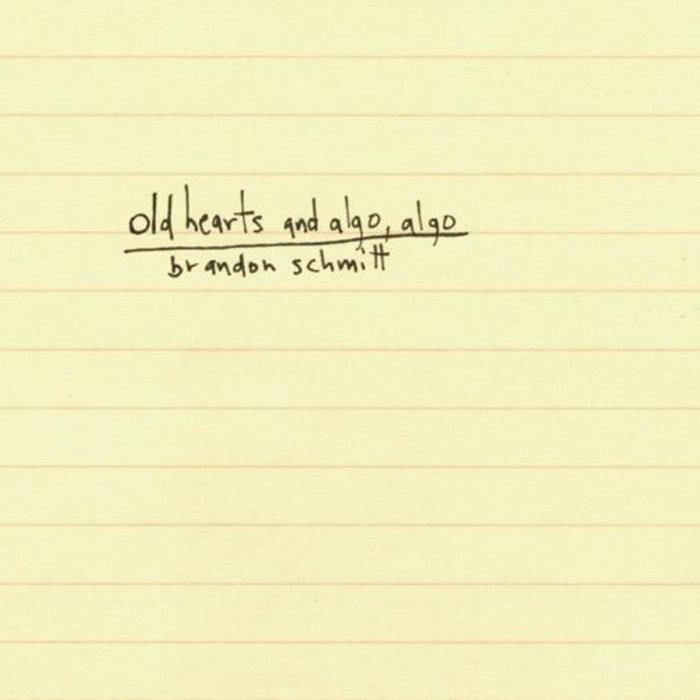 old hearts and algo, algo
brandon schmitt